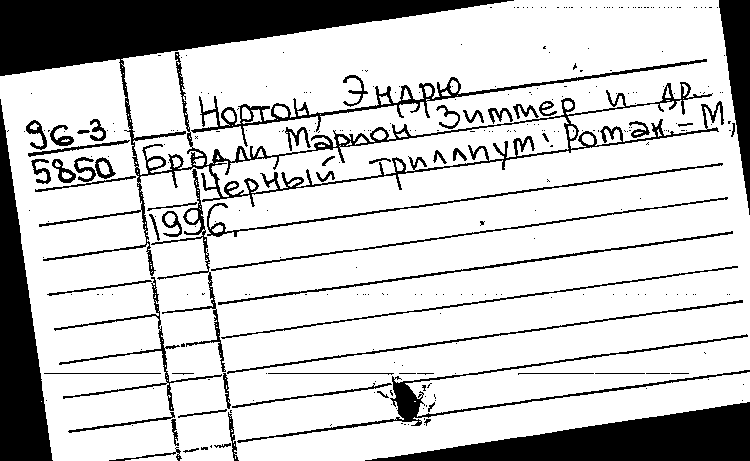 Нортон, Эндрю
96-3
5850
Брэдли, Марион Зиммер и др.
Черный триллиум: Роман. - М.,
1996.